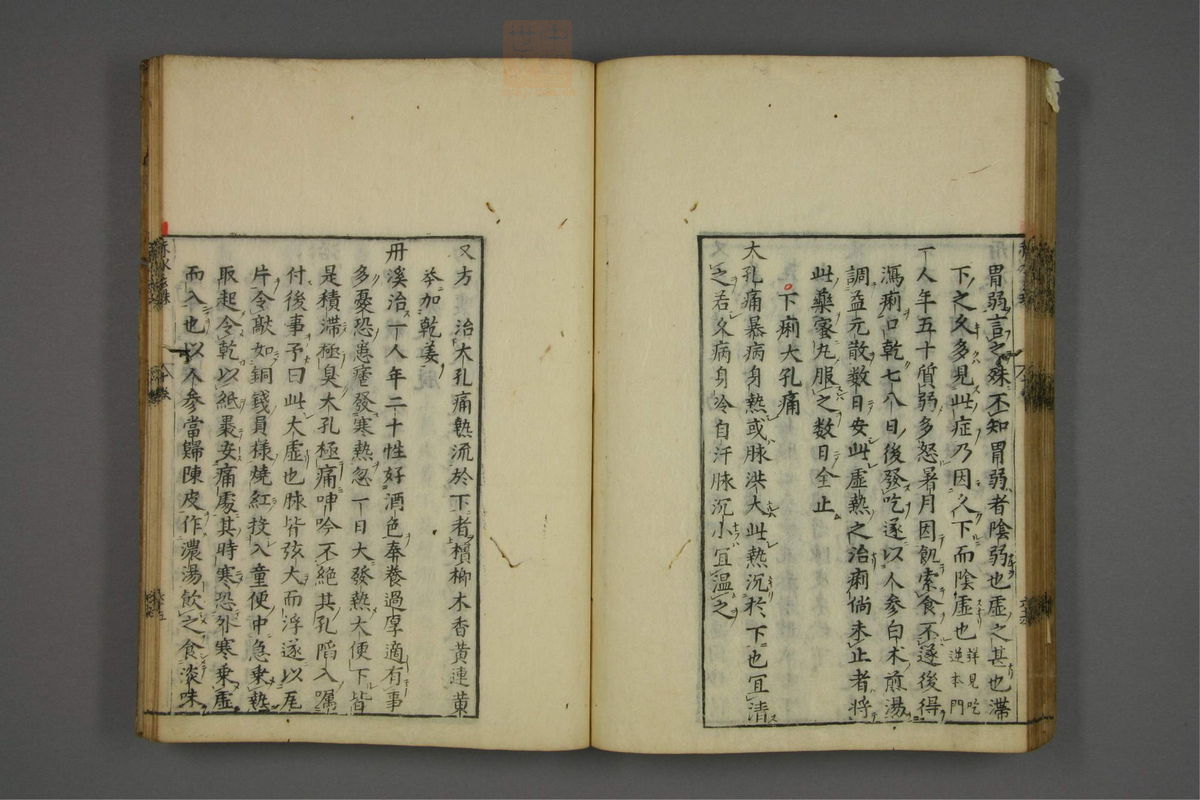 胃弱言之殊不知胃弱者陰弱也虛之甚也滯
下之久多見此症乃因久下而陰虛也詳見吃逆本門
一人年五十質弱多怒暑月因飢索食不遂後得
瀉痢口乾七八日後發吃遂以人參白术煎湯
調益元散數日安此虛熱之治痢倘未止者將
此藥蜜丸服之數日全止
下痢大孔痛
大孔痛暴病身熱或脉洪大此熱沉於下也宜清
之若久病身冷自汗脉沉小宜溫之
又方 治大孔痛熱流於下者檳榔木香黃連黃
芩加乾姜
丹溪治一人年二十性好酒色奉養過厚適有事
多憂恐患瘧發寒熱忽一日大發熱大便下皆
是積滯極臭大孔極痛呻吟不絕其孔陷入囑
付後事予曰此大虛也脉皆弦大而浮遂以瓦
片令敲如銅錢員樣燒紅投入童便中急乘熱
取起令乾以紙裹安痛處其時寒恐外寒乘虛
而入也以人參當歸陳皮作濃湯飲之食淡味